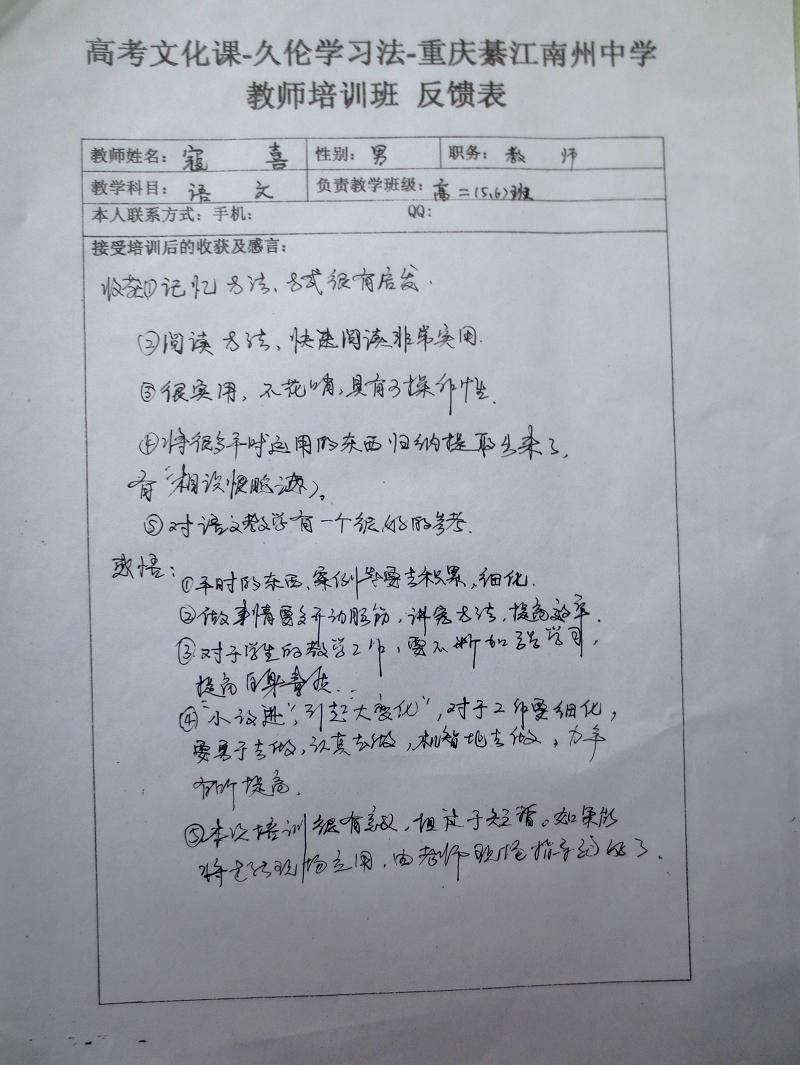 高考文化课-久伦学习法-重庆綦江南州中学
教师培训班 反馈表
教师姓名：寇 喜 性别：男 职务：教 师
教学科目：语 文 负责教学班级：高二(5,6)班
本人联系方式：手机： QQ：
接受培训后的收获及感言：
收获①记忆方法、方式很有启发.
②阅读方法、快速阅读非常实用.
③很实用，不花哨，具有可操作性.
④将很多平时运用的东西归纳提取出来了，
有“相识恨晚
⑤对语文教学有一个很好的参考.
感悟：①平时的东西、案例等要去积累，细化.
②做事情要多开动脑筋，讲究方法，提高效率.
③对于学生的教学工作，要不断加强学习，
提高自身素质.
④“小改进”，引起“大变化”，对于工作要细化，
要勇于去做，认真去做，机智地去做，力争
有所提高.
⑤本次培训很有意义，但过于短暂。如果能
将方法现场应用，由老师现场指导就好了.